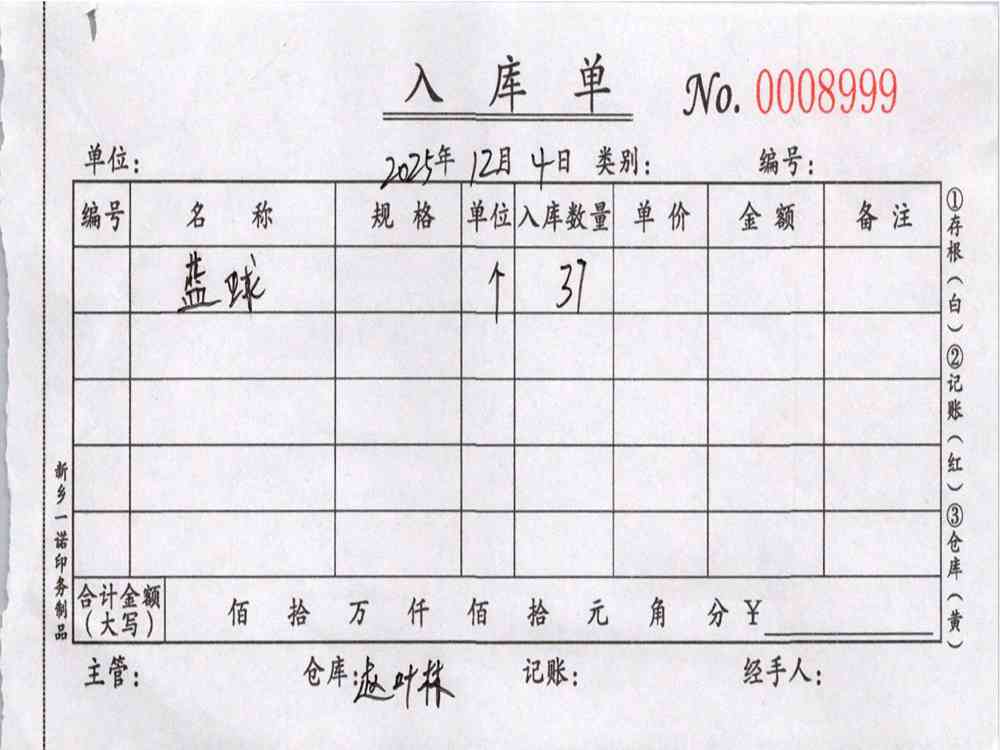 入库单 No. 0008999
单位： 2025年 12月 4日 类别： 编号：
编号 名称 规格 单位 入库数量 单价 金额 备注
蓝球 个 37
合计金额（大写） 佰 拾 万 仟 佰 拾 元 角 分 ¥
主管： 仓库：赵叶林 记账： 经手人：
①存根（白）②记账（红）③仓库（黄）
新乡一诺印务制品